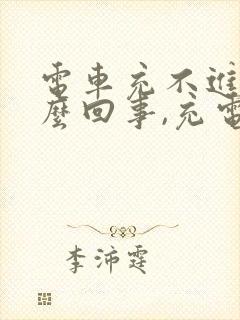 電車充不進
麼回事,充電
李沛霆